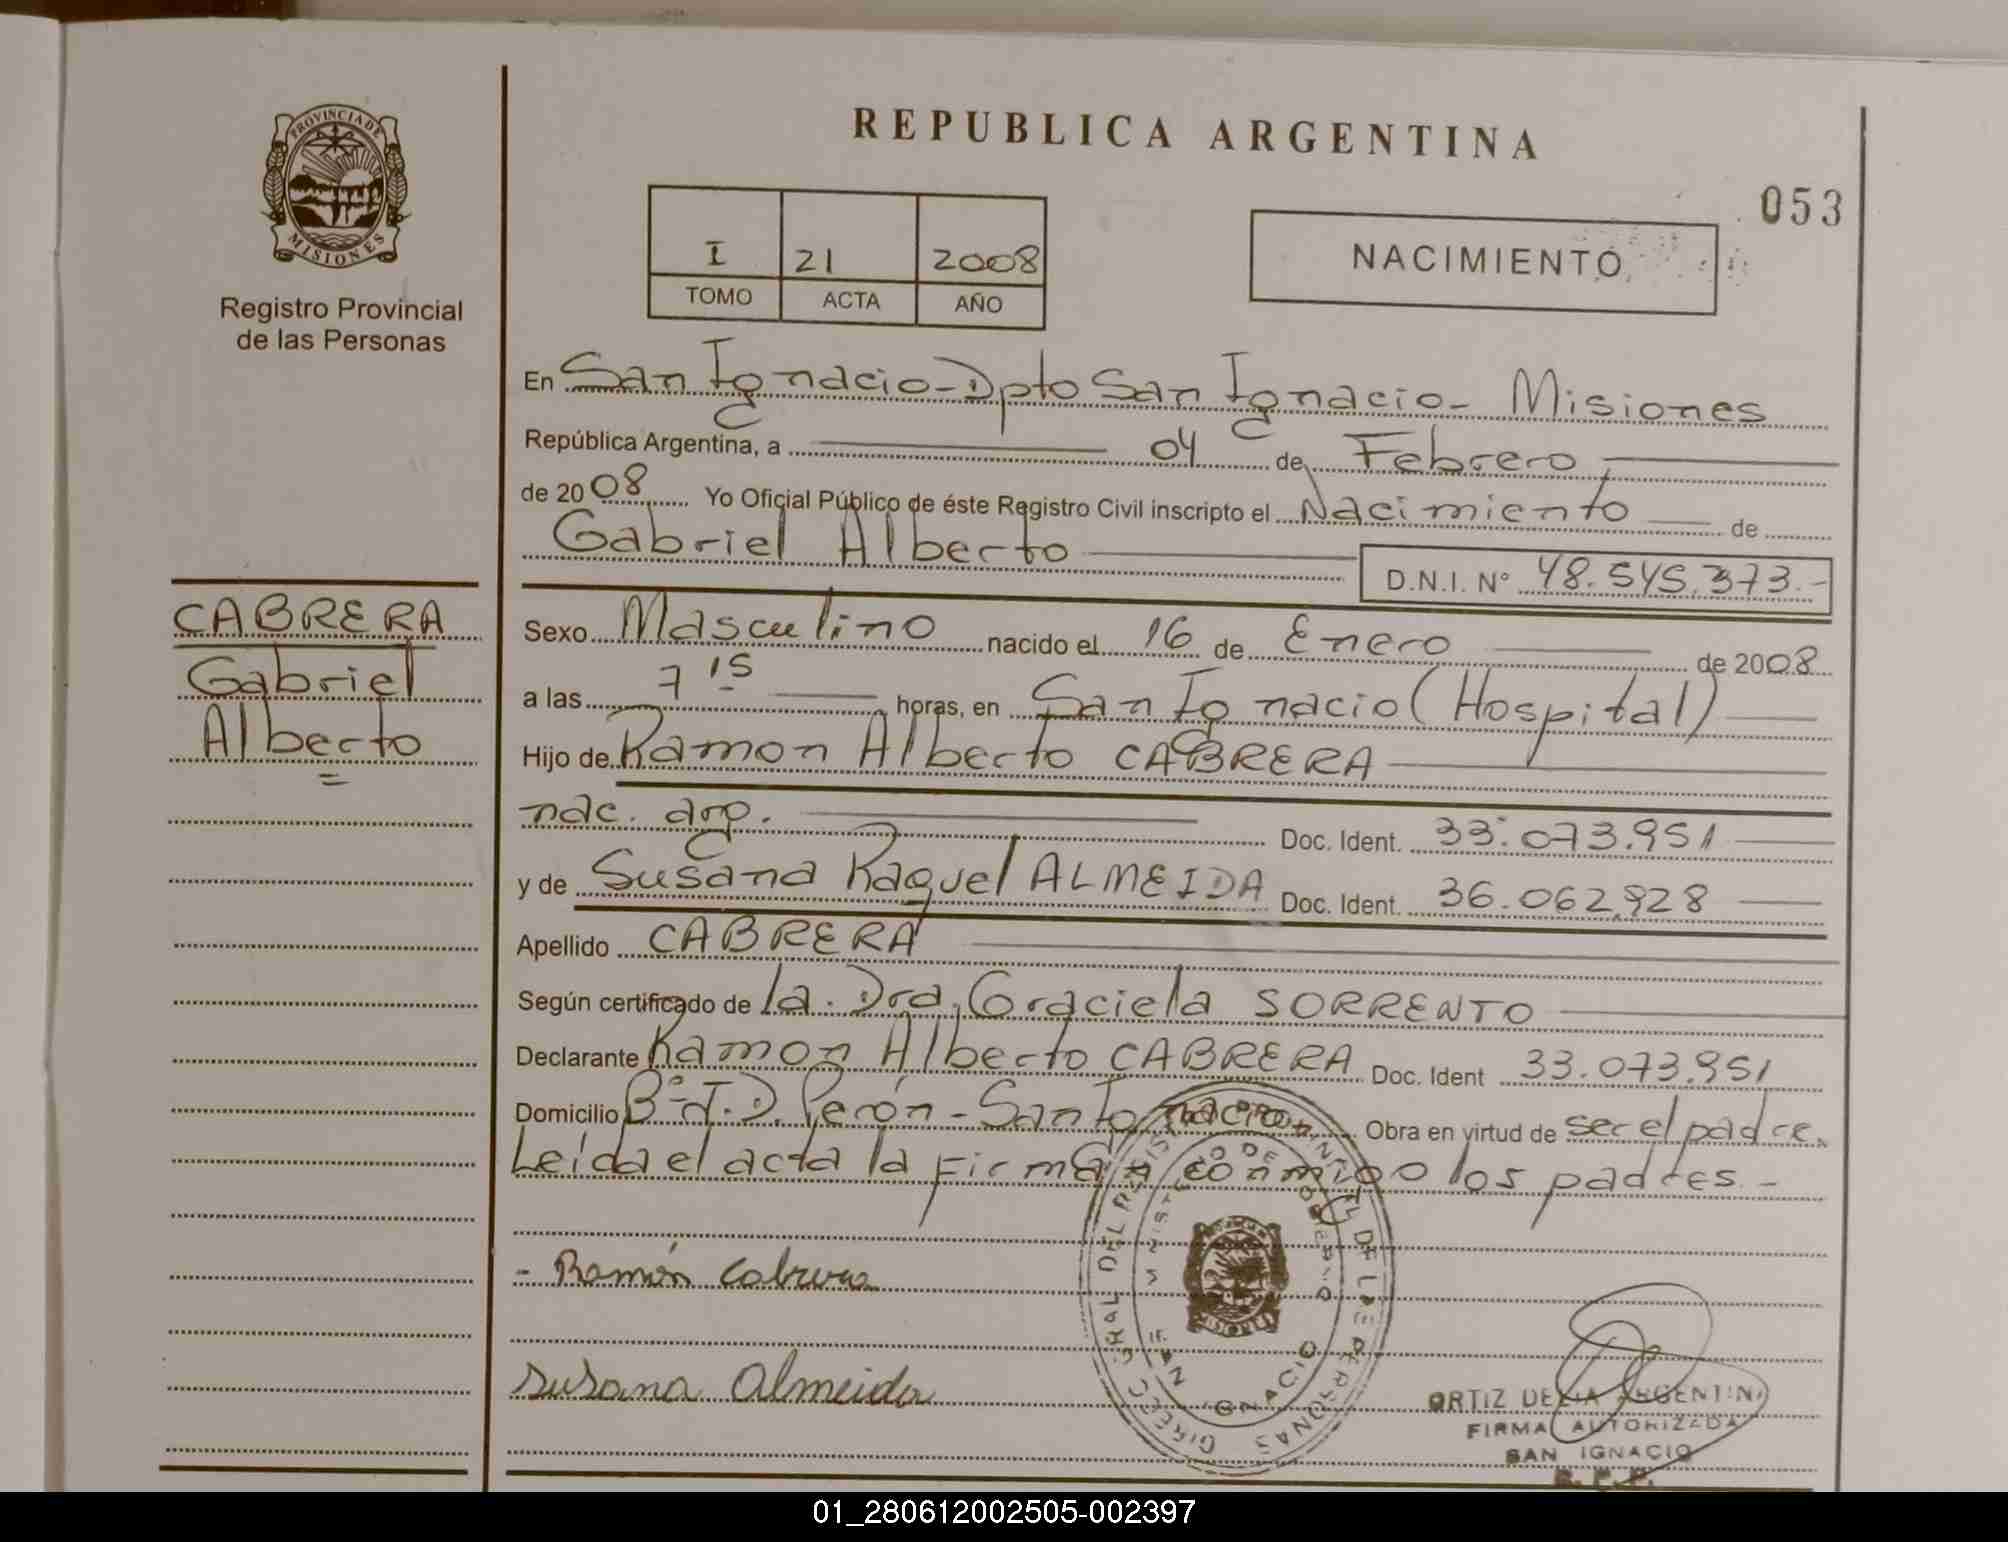 PROVINCIA DE
MISIONES
Registro Provincial
de las Personas
REPUBLICA ARGENTINA
053
I 21 2008
TOMO ACTA AÑO
NACIMIENTO
En San Ignacio - Dpto San Ignacio - Misiones
República Argentina, a 04 de Febrero
de 2008 Yo Oficial Público de éste Registro Civil inscripto el Nacimiento de
Gabriel Alberto D.N.I. N° 48.545.373.-
CABRERA
Gabriel
Alberto
Sexo Masculino nacido el 16 de Enero de 2008
a las 7 15 horas, en San Ignacio (Hospital)
Hijo de Ramon Alberto CABRERA
nac. arg. Doc. Ident. 33.073.951
y de Susana Raquel ALMEIDA Doc. Ident. 36.062.928
Apellido CABRERA
Según certificado de la. Dra. Graciela SORRENTO
Declarante Ramon Alberto CABRERA Doc. Ident 33.073.951
Domicilio B° J.D. Perón - San Ignacio Obra en virtud de ser el padre.
Leída el acta la firman conmigo los padres.-
- Ramón Cabrera
Susana Almeida
SAN IGNACIO
ORTIZ DELIA ARGENTINA
FIRMA AUTORIZADA
SAN IGNACIO
01_280612002505-002397